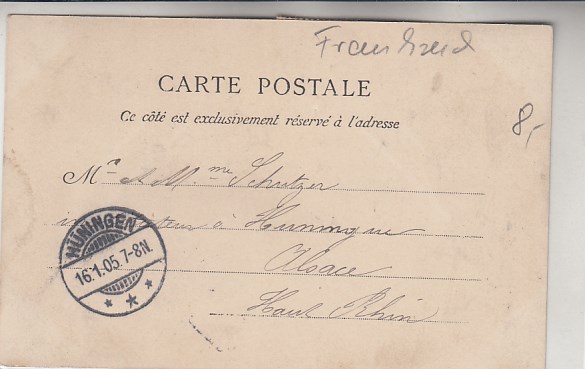 Frankreich
CARTE POSTALE
8,-
Ce côté est exclusivement réservé à l'adresse
Mr & Mme Schutzer
à Huningue
HÜNINGEN
16.1.05.7-8N.
Alsace
Haut Rhin